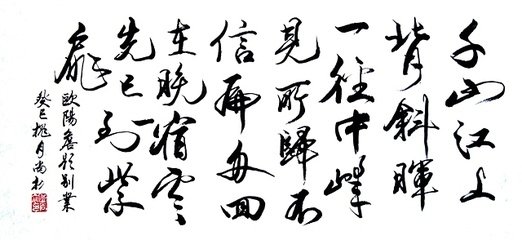 千山江上
背斜暉
一徑中峰
見所歸不
信扁舟回
在晚宿雲
先已到柴
扉
歐陽詹題別業
癸巳桃月尚